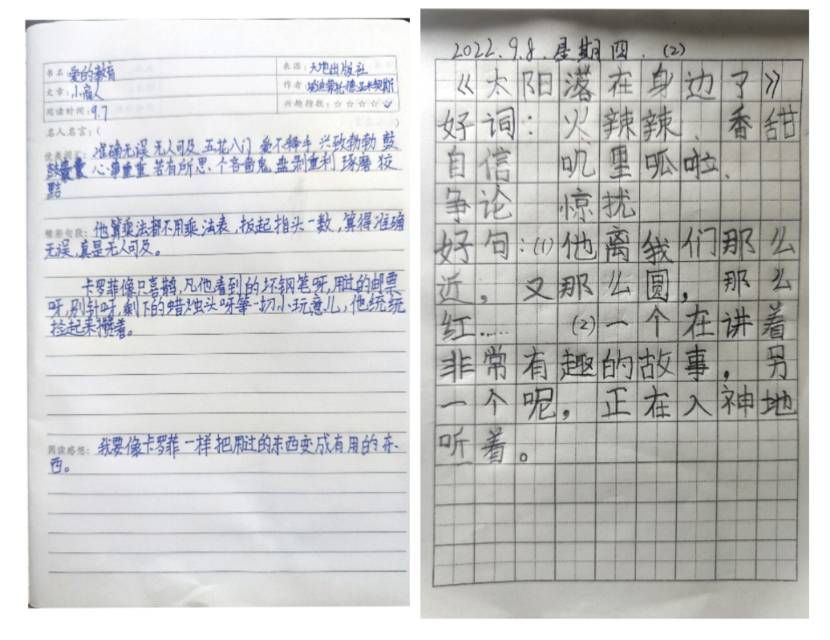 书名：爱的教育
出版：天地出版社
文章：小商人
作者：
阅读时间：9.7
兴趣指数：☆☆☆☆
名人名言：（ ）
准确无误 无人可及 五花八门 爱不释手 兴致勃勃 鼓
鼓囊囊 心事重重 若有所思 个吝啬鬼 盘剥重利 琢磨 狡
黠
精彩句段：他算乘法都不用乘法表，扳起指头一数，算得准确
无误，真是无人可及。
卡罗菲像只喜鹊，凡他看到的坏钢笔呀，用过的邮票
呀，别针呀，剩下的蜡烛头呀等一切小玩意儿，他统统
捡起来攒着。
阅读感想：我要像卡罗菲一样把用过的东西变成有用的东
西。
2022.9.8.星期四.（2）
《太阳落在身边了》
好词：火辣辣、香甜
自信 叽里呱啦、
争论 惊扰
好句：（1）他离我们那么
近，又那么圆，那么
红…… （2）一个在讲着
非常有趣的故事，另
一个呢，正在入神地
听着。